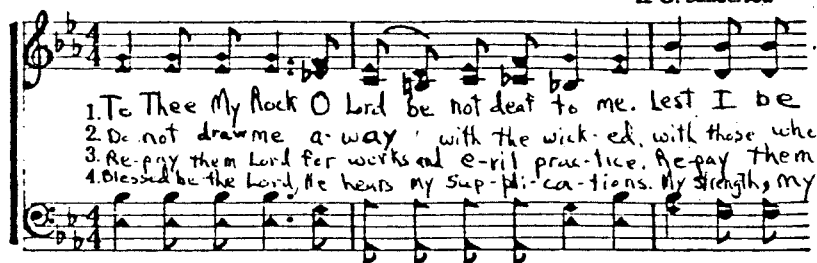 1. To Thee My Rock O Lord be not deaf to me. Lest I be
2. Do not draw me a-way with the wick-ed, with those who
3. Re-pay them Lord for works and e-vil prac-tice. Re-pay them
4. Blessed be the Lord, He hears my Sup-pli-ca-tions. My Strength, my